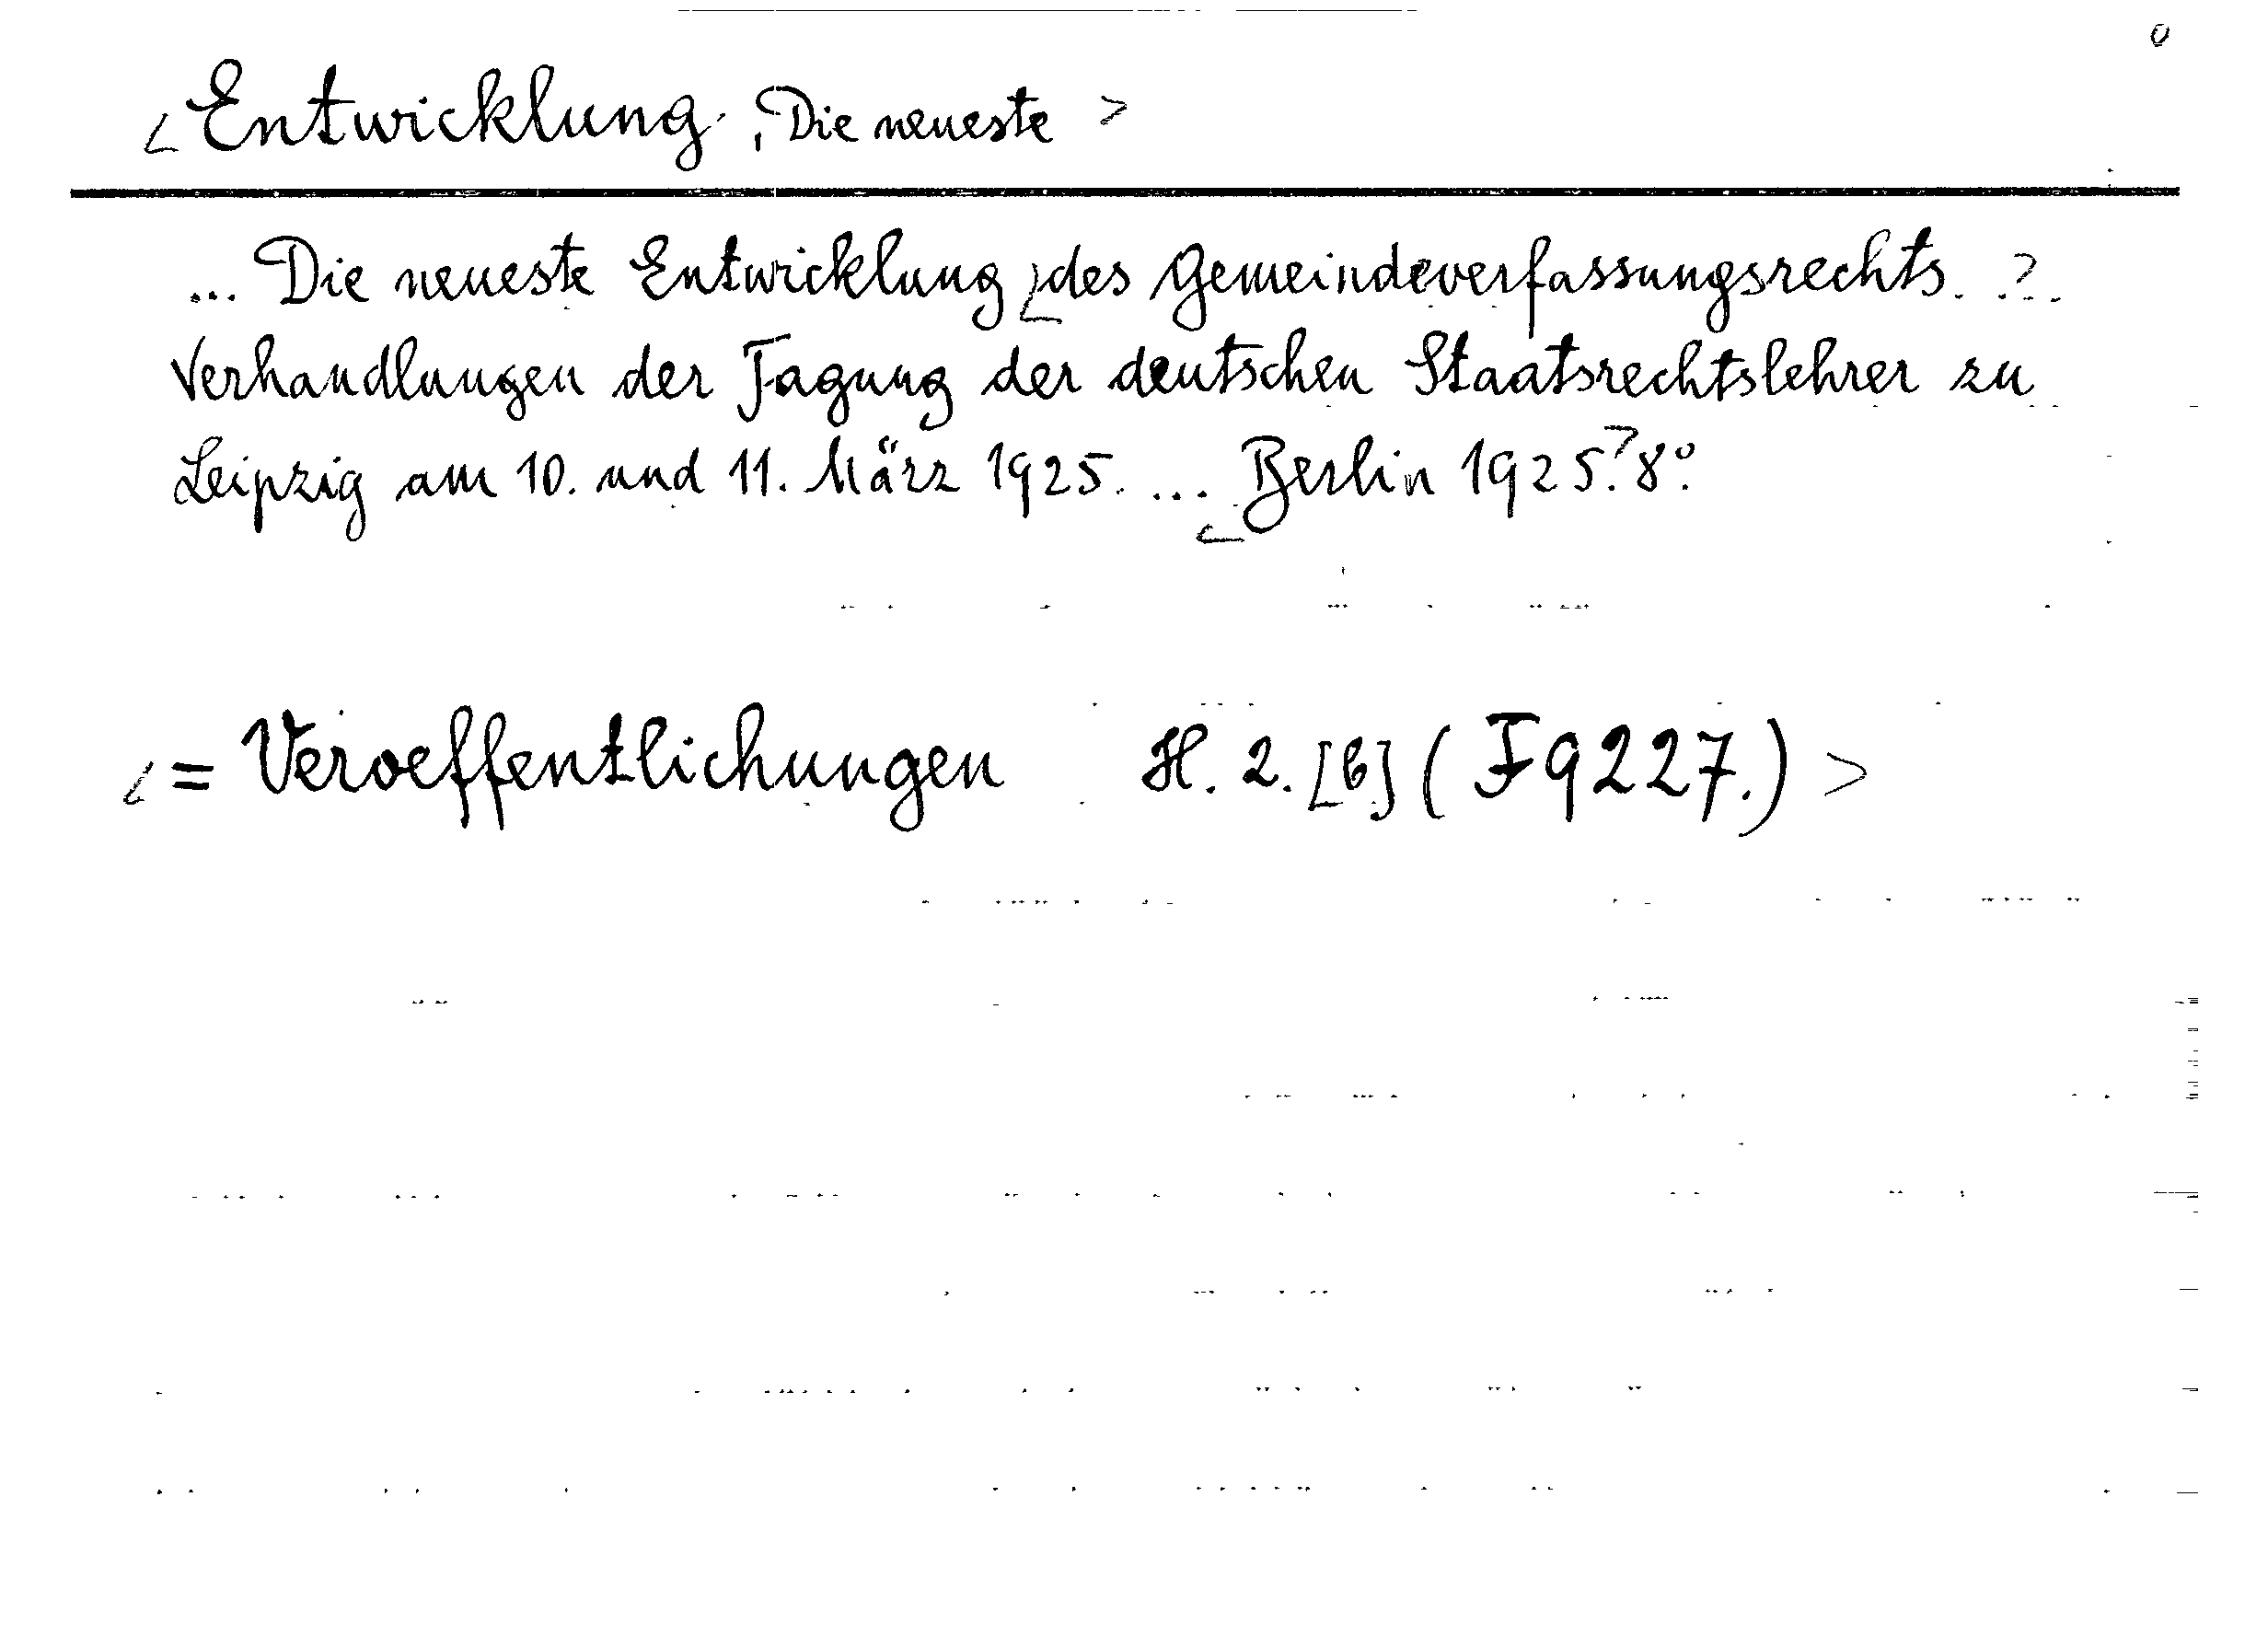 <Entwicklung, Die neueste>
... Die neueste Entwicklung des Gemeindeverfassungsrechts. ...
Verhandlungen der Tagung der deutschen Staatsrechtslehrer zu
Leipzig am 10. und 11. März 1925. ... Berlin 1925. 8°.
<= Veroeffentlichungen H. 2. [6] (F9227.)>